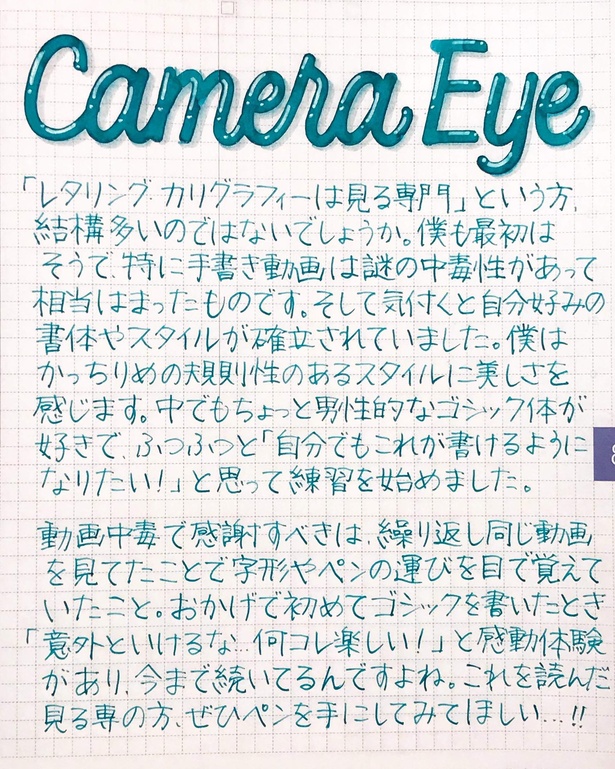 Camera Eye
「レタリング・カリグラフィーは見る専門」という方、
結構多いのではないでしょうか。僕も最初は
そうで、特に手書き動画は謎の中毒性があって
相当はまったものです。そして気付くと自分好みの
書体やスタイルが確立されていました。僕は
かっちりめの規則性のあるスタイルに美しさを
感じます。中でもちょっと男性的なゴシック体が
好きで、ふつふつと「自分でもこれが書けるように
なりたい!」と思って練習を始めました。
動画中毒で感謝すべきは、繰り返し同じ動画
を見てたことで字形やペンの運びを目で覚えて
いたこと。おかげで初めてゴシックを書いたとき
「意外といけるな…何コレ楽しい!」と感動体験
があり、今まで続いてるんですよね。これを読んだ
見る専の方、ぜひペンを手にしてみてほしい…!!